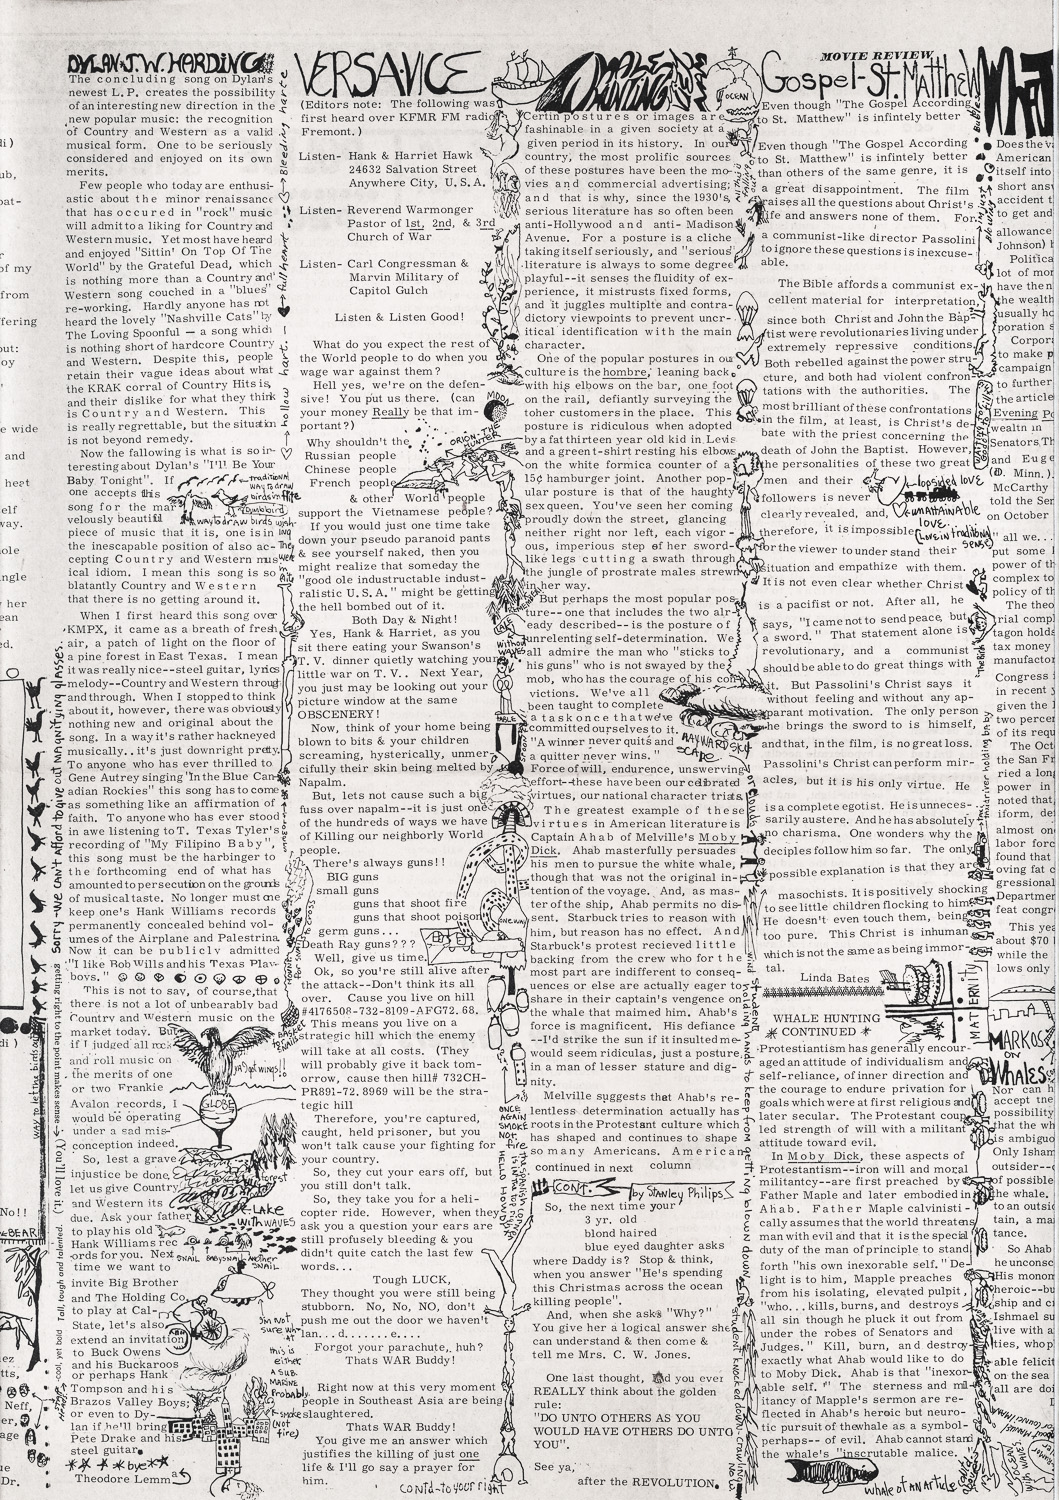 DYLAN J.W. HARDING
The concluding song on Dylan's
newest L.P. creates the possibility
of an interesting new direction in the
new popular music: the recognition
of Country and Western as a valid
musical form. One to be seriously
considered and enjoyed on its own
merits.
Few people who today are enthusi-
astic about the minor renaissance
that has occured in "rock" music
will admit to a liking for Country and
Western music. Yet most have heard
and enjoyed "Sittin' On Top Of The
World" by the Grateful Dead, which
is nothing more than a Country and
Western song couched in a "blues"
re-working. Hardly anyone has not
heard the lovely "Nashville Cats" by
The Loving Spoonful — a song which
is nothing short of hardcore Country
and Western. Despite this, people
retain their vague ideas about what
the KRAK corral of Country Hits is,
and their dislike for what they think
is Country and Western. This
is really regrettable, but the situation
is not beyond remedy.
Now the fallowing is what is so in-
teresting about Dylan's "I'll Be Your
Baby Tonight". If
one accepts this
song for the mar-
velously beautiful
piece of music that it is, one is in
the inescapable position of also ac-
cepting Country and Western mus-
ical idiom. I mean this song is so
blatantly Country and Western
that there is no getting around it.
When I first heard this song over
KMPX, it came as a breath of fresh
air, a patch of light on the floor of
a pine forest in East Texas. I mean
it was really nice--steel guitar, lyrics
melody--Country and Western through
and through. When I stopped to think
about it, however, there was obviously
nothing new and original about the
song. In a way it's rather hackneyed
musically..it's just downright pretty.
To anyone who has ever thrilled to
Gene Autrey singing "In the Blue Can-
adian Rockies" this song has to come
as something like an affirmation of
faith. To anyone who has ever stood
in awe listening to T. Texas Tyler's
recording of "My Filipino Baby",
this song must be the harbinger to
the forthcoming end of what has
amounted to persecution on the grounds
of musical taste. No longer must one
keep one's Hank Williams records
permanently concealed behind vol-
umes of the Airplane and Palestrina
Now it can be publicly admitted
"I like Bob Wills and his Texas Play-
boys."
This is not to say, of course, that
there is not a lot of unbearably bad
Country and Western music on the
market today. But
if I judged all rock
and roll music on
the merits of one
or two Frankie
Avalon records, I
would be operating
under a sad mis-
conception indeed.
So, lest a grave
injustice be done,
let us give Country
and Western its
due. Ask your father
to play his old
Hank Williams rec-
ords for you. Next
time we want to
invite Big Brother
and The Holding Co.
to play at Cal-
State, let's also
extend an invitation
to Buck Owens
and his Buckaroos
or perhaps Hank
Tompson and his
Brazos Valley Boys;
or even to Dy-
lan if he'll bring
Pete Drake and his
steel guitar.
bye
Theodore Lemma
hollow hart
full heart
Bleeding hart
traditional
way to draw
birds in flite
a way to draw birds
Sorry - we can't afford to give out magnifying glasses.
GLOBE
forest
Lake
with waves
snail baby snail another
snail
I'm not
sure
this is
either
a sub-
marine
Probably
smoke
(not
fire)
VERSA-VICE
(Editors note: The following was
first heard over KFMR FM radio
Fremont.)
Listen- Hank & Harriet Hawk
24632 Salvation Street
Anywhere City, U.S.A.
Listen- Reverend Warmonger
Pastor of 1st, 2nd, & 3rd
Church of War
Listen- Carl Congressman &
Marvin Military of
Capitol Gulch
Listen & Listen Good!
What do you expect the rest of
the World people to do when you
wage war against them?
Hell yes, we're on the defen-
sive! You put us there. (can
your money Really be that im-
portant?)
Why shouldn't the
Russian people
Chinese people
French people
& other World people
support the Vietnamese people?
If you would just one time take
down your pseudo paranoid pants
& see yourself naked, then you
might realize that someday the
"good ole industructable indust-
ralistic U.S.A." might be getting
the hell bombed out of it.
Both Day & Night!
Yes, Hank & Harriet, as you
sit there eating your Swanson's
T.V. dinner quietly watching your
little war on T.V.. Next Year,
you just may be looking out your
picture window at the same
OBSCENERY!
Now, think of your home being
blown to bits & your children
screaming, hysterically, unmer-
cifully their skin being melted by
Napalm.
But, lets not cause such a big
fuss over napalm--it is just one
of the hundreds of ways we have
of Killing our neighborly World
people.
There's always guns!!
BIG guns
small guns
guns that shoot fire
guns that shoot poison
germ guns...
Death Ray guns???
Well, give us time.
Ok, so you're still alive after
the attack--Don't think its all
over. Cause you live on hill
#4176508-732-8109-AFG72.68.
This means you live on a
strategic hill which the enemy
will take at all costs. (They
will probably give it back tom-
orrow, cause then hill# 732CH-
PR891-72.8969 will be the stra-
tegic hill
Therefore, you're captured,
caught, held prisoner, but you
won't talk cause your fighting for
your country.
So, they cut your ears off, but
you still don't talk.
So, they take you for a heli-
copter ride. However, when they
ask you a question your ears are
still profusely bleeding & you
didn't quite catch the last few
words...
Tough LUCK,
They thought you were still being
stubborn. No, No, NO, don't
push me out the door we haven't
lan....d.......e....
Forgot your parachute, huh?
Thats WAR Buddy!
Right now at this very moment
people in Southeast Asia are being
slaughtered.
Thats WAR Buddy!
You give me an answer which
justifies the killing of just one
life & I'll go say a prayer for
him.
cont'd-to your right
MOON
ORION THE
HUNTER
TABLE
ONE WAY
ONCE
AGAIN
SMOKE
NOT
fire
WHALE HUNTING
Certin postures or images are
fashinable in a given society at a
given period in its history. In our
country, the most prolific sources
of these postures have been the mo-
vies and commercial advertising;
and that is why, since the 1930's,
serious literature has so often been
anti-Hollywood and anti- Madison
Avenue. For a posture is a cliche
taking itself seriously, and "serious"
literature is always to some degree
playful--it senses the fluidity of ex-
perience, it mistrusts fixed forms,
and it juggles multiplte and contra-
dictory viewpoints to prevent uncr-
itical identification with the main
character.
One of the popular postures in our
culture is the hombre, leaning back
with his elbows on the bar, one foot
on the rail, defiantly surveying the
toher customers in the place. This
posture is ridiculous when adopted
by a fat thirteen year old kid in Levis
and a green t-shirt resting his elbows
on the white formica counter of a
15¢ hamburger joint. Another pop-
ular posture is that of the haughty
sex queen. You've seen her coming
proudly down the street, glancing
neither right nor left, each vigor-
ous, imperious step of her sword-
like legs cutting a swath through
the jungle of prostrate males strewn
in her way.
But perhaps the most popular pos-
ture--one that includes the two alr-
eady described--is the posture of
unrelenting self-determination. We
all admire the man who "sticks to
his guns" who is not swayed by the
mob, who has the courage of his con-
victions. We've all
been taught to complete
a task once that we've
committed ourselves to it.
"A winner never quits and
a quitter never wins."
Force of will, endurence, unswerving
effort--these have been our celibrated
virtues, our national character trists.
The greatest example of these
virtues in American literature is
Captain Ahab of Melville's Moby
Dick. Ahab masterfully persuades
his men to pursue the white whale,
though that was not the original in-
tention of the voyage. And, as mas-
ter of the ship, Ahab permits no dis-
sent. Starbuck tries to reason with
him, but reason has no effect. And
Starbuck's protest recieved little
backing from the crew who for the
most part are indifferent to conseq-
uences or else are actually eager to
share in their captain's vengence on
the whale that maimed him. Ahab's
force is magnificent. His defiance
--I'd strike the sun if it insulted me--
would seem ridiculas, just a posture,
in a man of lesser stature and dig-
nity.
Melville suggests that Ahab's re-
lentless determination actually has
roots in the Protestant culture which
has shaped and continues to shape
so many Americans. American
continued in next column
CONT. by Stanley Philips
So, the next time your
3 yr. old
blond haired
blue eyed daughter asks
where Daddy is? Stop & think,
when you answer "He's spending
this Christmas across the ocean
killing people".
And, when she asks "Why?"
You give her a logical answer she
can understand & then come &
tell me Mrs. C. W. Jones.
One last thought, Did you ever
REALLY think about the golden
rule:
"DO UNTO OTHERS AS YOU
WOULD HAVE OTHERS DO UNTO
YOU".
See ya,
after the REVOLUTION.
A WAYWARD SKY
SCAPE
OCEAN
MOVIE REVIEW
Gospel-St. Matthew
Even though "The Gospel According
to St. Matthew" is infintely better
Even though "The Gospel According
to St. Matthew" is infintely better
than others of the same genre, it is
a great disappointment. The film
raises all the questions about Christ's
life and answers none of them. For
a communist-like director Passolini
to ignore these questions is inexcuse-
able.
The Bible affords a communist ex-
cellent material for interpretation
since both Christ and John the Bap-
tist were revolutionaries living under
extremely repressive conditions.
Both rebelled against the power stru-
cture, and both had violent confron-
tations with the authorities. The
most brilliant of these confrontations
in the film, at least, is Christ's de-
bate with the priest concerning the
death of John the Baptist. However,
the personalities of these two great
men and their
followers is never
clearly revealed, and,
therefore, it is impossible
for the viewer to understand their
situation and empathize with them.
It is not even clear whether Christ
is a pacifist or not. After all, he
says, "I came not to send peace, but
a sword." That statement alone is
revolutionary, and a communist
should be able to do great things with
it. But Passolini's Christ says it
without feeling and without any ap-
parant motivation. The only person
he brings the sword to is himself,
and that, in the film, is no great loss.
Passolini's Christ can perform mir-
acles, but it is his only virtue. He
is a complete egotist. He is unneces-
sarily austere. And he has absolutely
no charisma. One wonders why the
deciples follow him so far. The only
possible explanation is that they are
masochists. It is positively shocking
to see little children flocking to him.
He doesn't even touch them, being
too pure. This Christ is inhuman,
which is not the same as being immor-
tal.
Linda Bates
lopsided love
unattainable
love.
(Love in traditional
sense)
WHALE HUNTING
CONTINUED
Protestantism has generally encour-
aged an attitude of individualism and
self-reliance, of inner direction and
the courage to endure privation for
goals which were at first religious and
later secular. The Protestant coup-
led strength of will with a militant
attitude toward evil.
In Moby Dick, these aspects of
Protestantism--iron will and moral
militantcy--are first preached by
Father Maple and later embodied in
Ahab. Father Maple calvinisti-
cally assumes that the world threatens
man with evil and that it is the special
duty of the man of principle to stand
forth "his own inexorable self." De-
light is to him, Mapple preaches
from his isolating, elevated pulpit,
"who...kills, burns, and destroys
all sin though he pluck it out from
under the robes of Senators and
Judges." Kill, burn, and destroy
exactly what Ahab would like to do
to Moby Dick. Ahab is "inexor-
able self." The sterness and mil-
itancy of Mapple's sermon are re-
flected in Ahab's heroic but neuro-
tic pursuit of thwhale as a symbol-
perhaps-- of evil. Ahab cannot stand
the whale's "inscrutable malice.
whale of an article
MATERNITY
MARKOS
ON
WHALES
Does the
American
itself into
short ans
accident t
to get and
allowance
Johnson) l
Politica
lot of mor
have then
the wealth
usually ho
poration s
Corpora
to make p
campaign
to further
the article
Evening Po
wealth in
Senators Th
and Euge
(D. Minn.)
McCarthy
told the Ser
on October
" all we...
put some l
power of th
complex to
policy of th
The theo
rial compl
tagon holds
tax money
manufactor
Congress
in recent
given the
two percen
of its requ
the San Fr
ried a long
power in
noted that,
iform, del
almost on
labor forc
found that
oving fat c
gressional
Departmen
feat congr
This yea
about $70 l
while the
lows only
Nor can h
accept the
possibility
that the wh
is ambiguo
Only Isham
outsider--o
of possible
the whale.
to an outsid
tain, a ma
tance.
So Ahab
he unconsc
His monom
heroic--bu
ship and ci
Ishmael su
live with a
ties, who p
able felicit
on the sea
all are doi